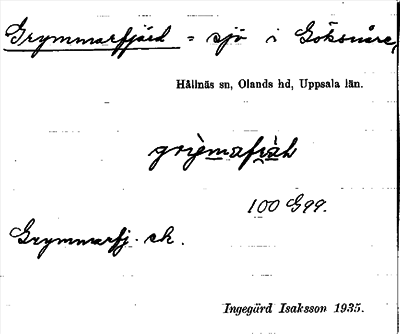 Grymmarfjärd = sjö i Göksnåre,
Hållnäs sn, Olands hd, Uppsala län.
100 G 99.
Grymmarfj. ek.
Ingegärd Isaksson 1935.